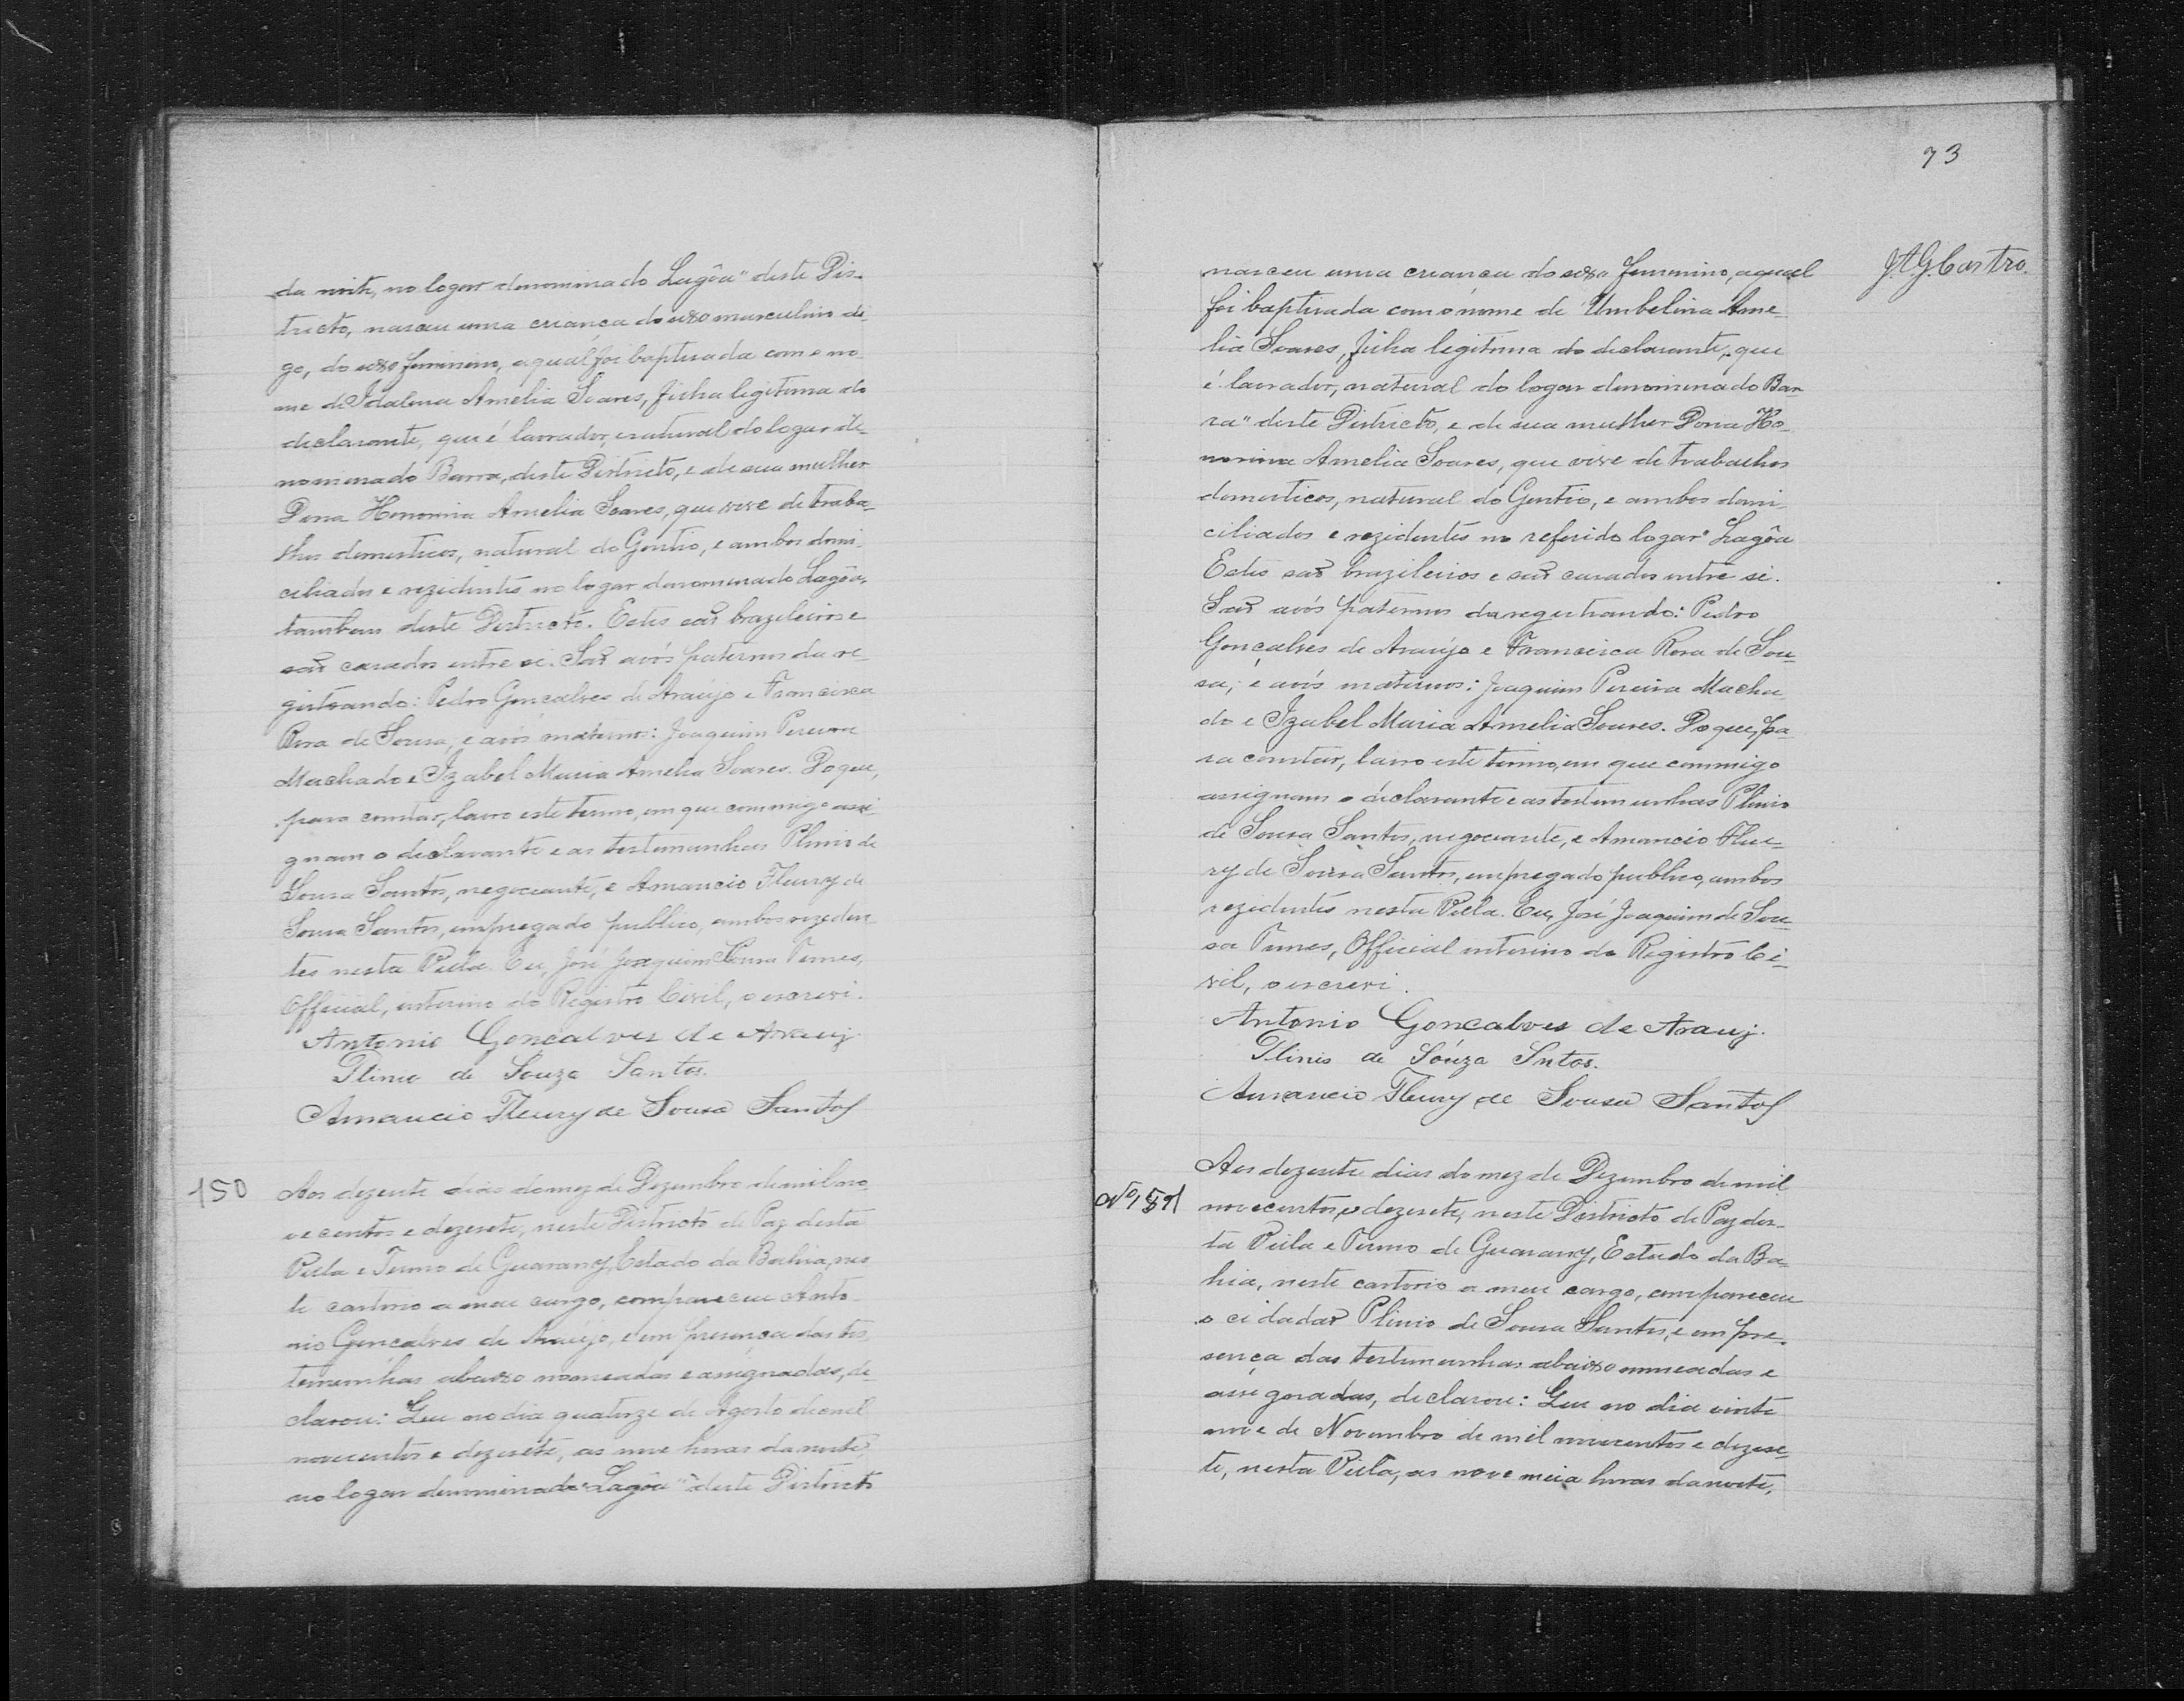 da noite, no logar denominado Lagôa" deste Dis-
tricto, nasceu uma criança do sexo masculino di-
go, do sexo feminino, a qual foi baptisada com o no-
me de Idalina Amelia Soares, filha legitima do
declarante, que é lavrador, natural do logar de-
nominado Barra, deste Districto, e de sua mulher
Dona Honorina Amelia Soares, que vive de traba-
lhos domesticos, natural do Gentio, e ambos domi-
ciliados e rezidentes no logar denominado Lagôa,
tambem deste Districto. Estes são brazileiros e
são casados entre si. São avós paternos da re-
gistrando: Pedro Gonçalves de Araújo e Francisca
Rosa de Sousa, e avós maternos: Joaquim Pereira
Machado e Izabel Maria Amelia Soares. Do que,
para constar, lavro este termo, em que commigo assi-
gnam o declarante e as testemunhas Plinio de
Sousa Santos, negociante, e Amancio Fleury de
Sousa Santos, empregado publico, ambos reziden-
tes nesta Villa. Eu, José Joaquim Sousa Tunes,
Official, interino do Registro Civil, o escrevi.
Antonio Goncalves de Arauj
Plinio de Souza Santos.
Amancio Fleury de Sousa Santos
150 Aos dezesete dias do mez de Dezembro de mil no-
vecentos e dezesete, neste Districto de Paz desta
Villa e Termo de Guarany, Estado da Bahia, nes-
te cartorio a meu cargo, compareceu Anto-
nio Gonçalves de Araújo, e em presença das tes-
temunhas abaixo nomeadas e assignadas, de-
clarou: Que no dia quatorze de Agosto de mil
novecentos e dezesete, as nove horas da noite,
no logar denominado "Lagôa" deste Districto
73
J.A.G. Castro.
nasceu uma criança do sexo femenino, a qual
foi baptisada com o nome de Umbelina Ame-
lia Soares, filha legitima do declarante, que
é lavrador, natural do logar denominado Bar-
ra" deste Districto, e de sua mulher Dona Ho-
norina Amelia Soares, que vive de trabalhos
domesticos, natural do Gentio, e ambos domi-
ciliados e rezidentes no referido logar "Lagôa
Estes são brazileiros e são casados entre si.
São avós paternos da registrando: Pedro
Gonçalves de Araújo e Francisca Rosa de Sou-
sa; e avós maternos: Joaquim Pereira Macha-
do e Izabel Maria Amelia Soares. Do que, pa-
ra constar, lavro este termo, em que commigo
assignam o declarante e as testemunhas Plinio
de Sousa Santos, negociante, e Amancio Fleu-
ry de Sousa Santos, empregado publico, ambos
rezidentes nesta Villa. Eu, José Joaquim de Sou-
sa Tunes, Official interino do Registro Ci-
vil, o escrevi.
Antonio Goncalves de Arauj.
Plinio de Souza Sntos.
Amancio Fleury de Sousa Santos
Aos dezesete dias do mez de Dezembro de mil
Nº 151 novecentos e dezesete, neste Districto de Paz des-
ta Villa e Termo de Guarany, Estado da Ba-
hia, neste cartorio a meu cargo, compareceu
o cidadão Plinio de Sousa Santos, e em pre-
sença das testemunhas abaixo nomeadas e
assignadas, declarou: Que no dia vinte
nove de Novembro de mil novecentos e dezese-
te, nesta Villa, as nove meia horas da noite,